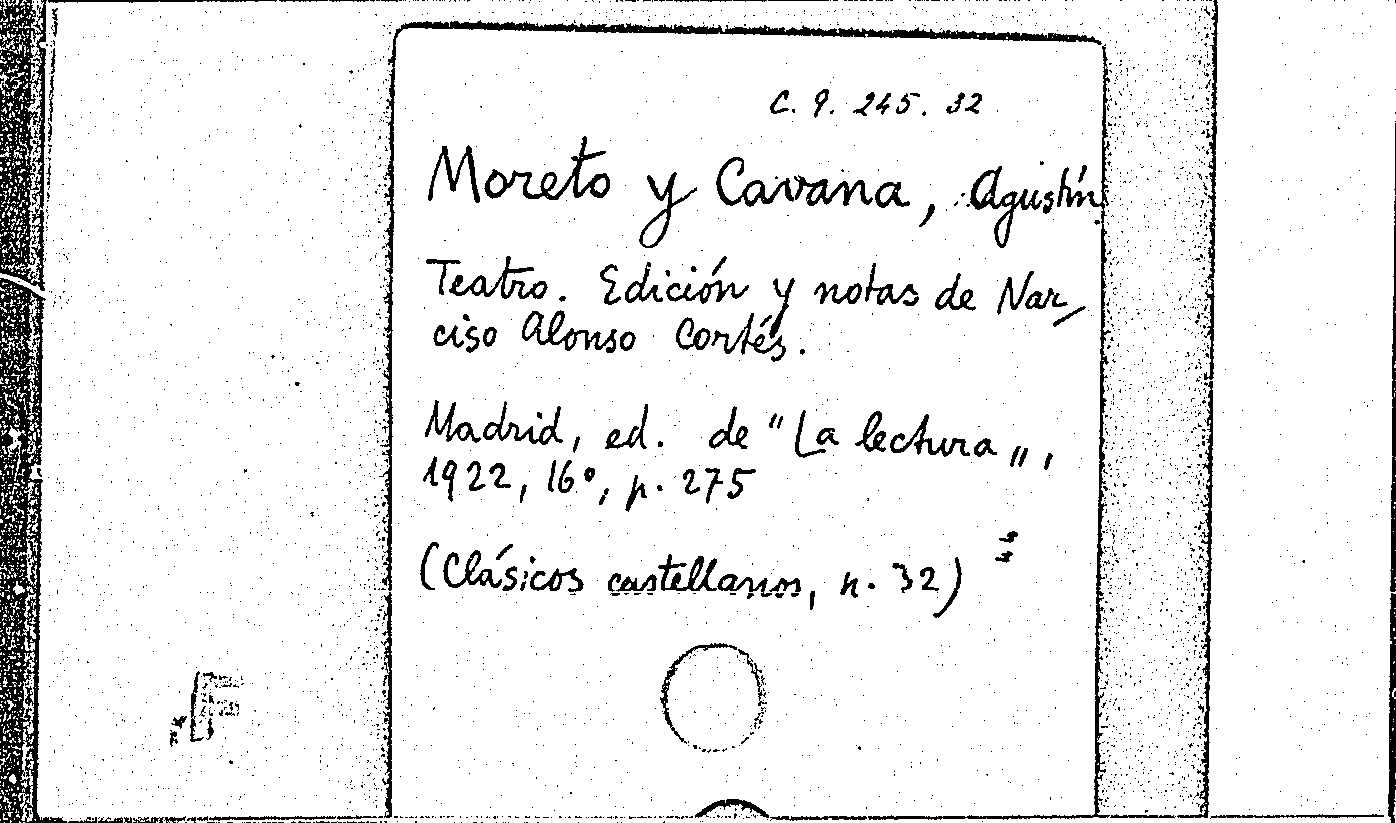 C. 9. 245. 32
Moreto y Cavana, Agustín
Teatro. Edición y notas de Nar,
ciso Alonso Cortés.
Madrid, ed. de "La lectura„,
1922, 16°, p. 275
(Clásicos castellanos, n. 32)
F